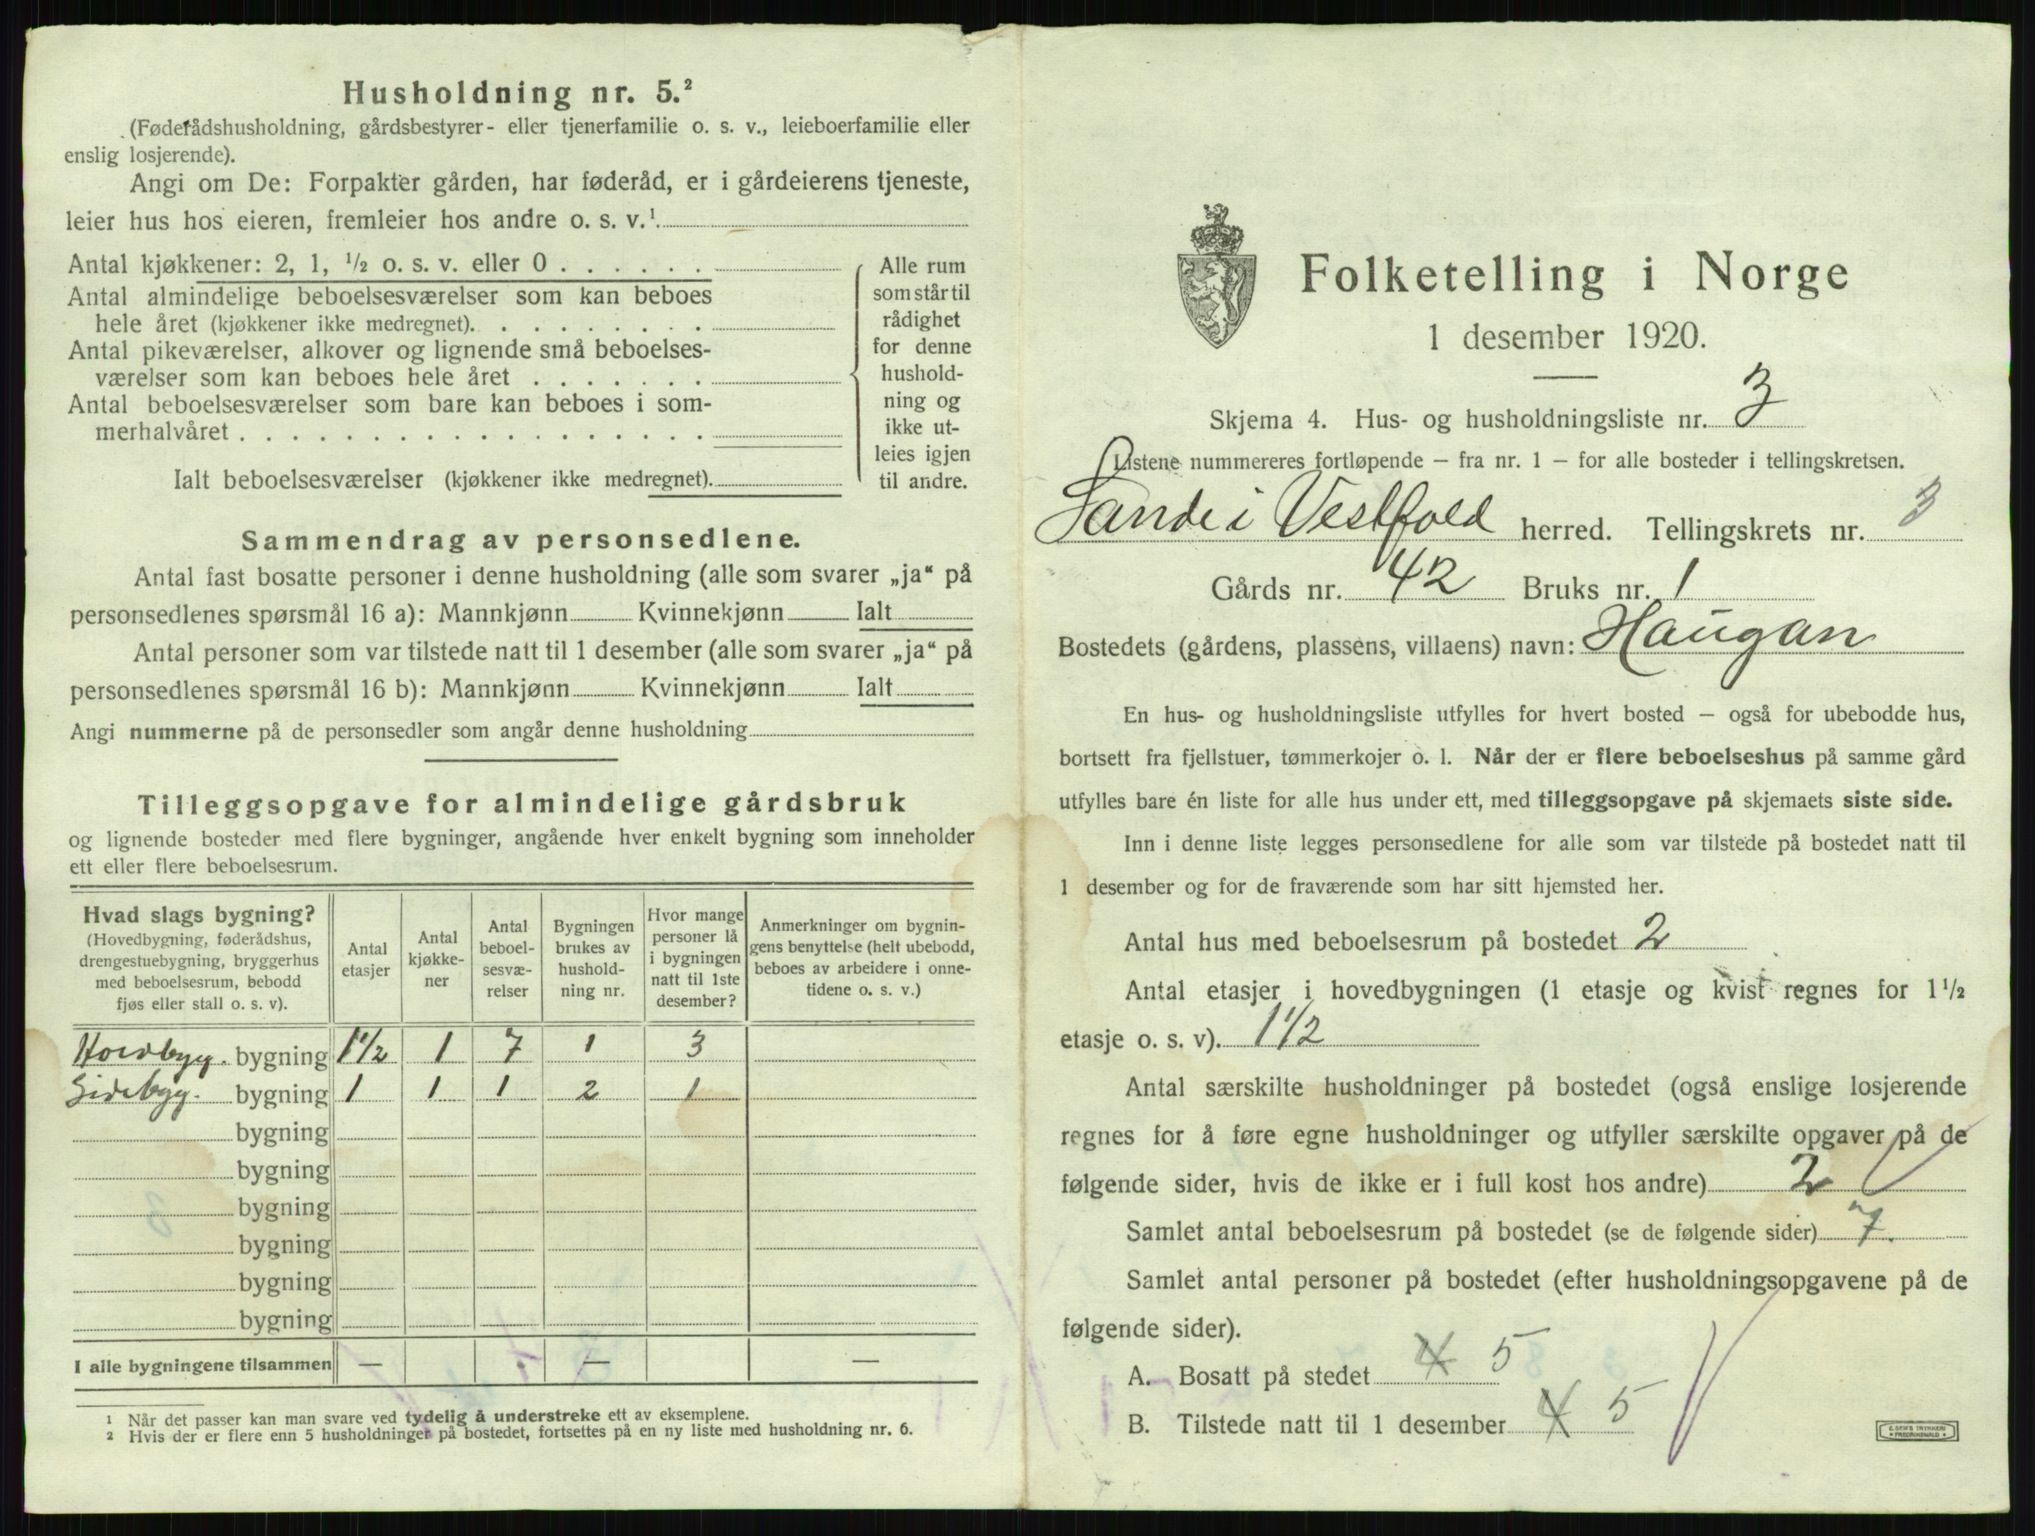 Husholdning nr. 5.²
(Føderådshusholdning, gårdsbestyrer- eller tjenerfamilie o. s. v., leieboerfamilie eller
enslig losjerende).
Angi om De: Forpakter gården, har føderåd, er i gårdeierens tjeneste,
leier hus hos eieren, fremleier hos andre o. s. v.¹
Antal kjøkkener: 2, 1, ½ o. s. v. eller 0 . . . . . .
Antal almindelige beboelsesværelser som kan beboes
hele året (kjøkkener ikke medregnet). . . . . . . . .
Antal pikeværelser, alkover og lignende små beboelses-
værelser som kan beboes hele året . . . . . . .
Antal beboelsesværelser som bare kan beboes i som-
merhalvåret . . . . . . . . . . . . . . . . . .
Ialt beboelsesværelser (kjøkkener ikke medregnet).
Alle rum
som står til
rådighet
for denne
hushold-
ning og
ikke ut-
leies igjen
til andre.
Sammendrag av personsedlene.
Antal fast bosatte personer i denne husholdning (alle som svarer „ja“ på
personsedlenes spørsmål 16 a): Mannkjønn Kvinnekjønn Ialt
Antal personer som var tilstede natt til 1 desember (alle som svarer „ja“ på
personsedlenes spørsmål 16 b): Mannkjønn Kvinnekjønn Ialt
Angi nummerne på de personsedler som angår denne husholdning
Tilleggsopgave for almindelige gårdsbruk
og lignende bosteder med flere bygninger, angående hver enkelt bygning som inneholder
ett eller flere beboelsesrum.
Hvad slags bygning?
(Hovedbygning, føderådshus,
drengestuebygning, bryggerhus
med beboelsesrum, bebodd
fjøs eller stall o. s. v).
Antal
etasjer
Antal
kjøkke-
ner
Antal
beboel-
sesvæ-
relser
Bygningen
brukes av
hushold-
ning nr.
Hvor mange
personer lå
i bygningen
natt til 1ste
desember?
Anmerkninger om bygnin-
gens benyttelse (helt ubebodd,
beboes av arbeidere i onne-
tidene o. s. v.)
Hovedbyg. bygning 1½ 1 7 1 3
Sidebyg. bygning 1 1 1 2 1
bygning
bygning
bygning
bygning
bygning
bygning
I alle bygningene tilsammen — — —
¹ Når det passer kan man svare ved tydelig å understreke ett av eksemplene.
² Hvis der er flere enn 5 husholdninger på bostedet, fortsettes på en ny liste med husholdning nr. 6.
Folketelling i Norge
1 desember 1920.
Skjema 4. Hus- og husholdningsliste nr. 3
Listene nummereres fortløpende — fra nr. 1 — for alle bosteder i tellingskretsen.
Sande i Vestfold herred. Tellingskrets nr. 3
Gårds nr. 42 Bruks nr. 1
Bostedets (gårdens, plassens, villaens) navn: Haugan
En hus- og husholdningsliste utfylles for hvert bosted — også for ubebodde hus,
bortsett fra fjellstuer, tømmerkojer o. l. Når der er flere beboelseshus på samme gård
utfylles bare én liste for alle hus under ett, med tilleggsopgave på skjemaets siste side.
Inn i denne liste legges personsedlene for alle som var tilstede på bostedet natt til
1 desember og for de fraværende som har sitt hjemsted her.
Antal hus med beboelsesrum på bostedet 2
Antal etasjer i hovedbygningen (1 etasje og kvist regnes for 1½
etasje o. s. v). 1½
Antal særskilte husholdninger på bostedet (også enslige losjerende
regnes for å føre egne husholdninger og utfyller særskilte opgaver på de
følgende sider, hvis de ikke er i full kost hos andre) 2
Samlet antal beboelsesrum på bostedet (se de følgende sider) 7.
Samlet antal personer på bostedet (efter husholdningsopgavene på de
følgende sider).
A. Bosatt på stedet 4 5
B. Tilstede natt til 1 desember 4 5